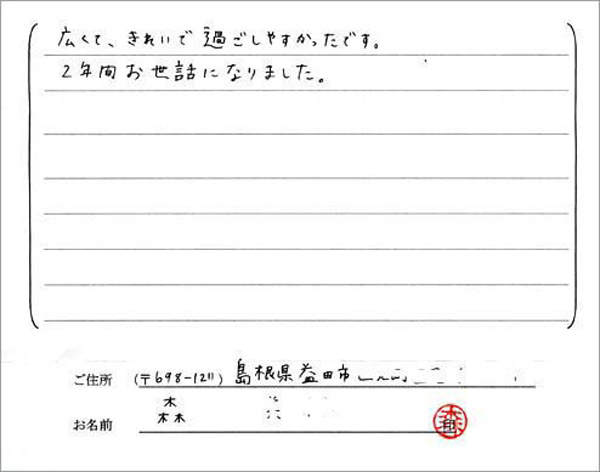 広くて、きれいで過ごしやすかったです。
2年間お世話になりました。
ご住所 (〒698-1211) 島根県益田市
お名前 森 印